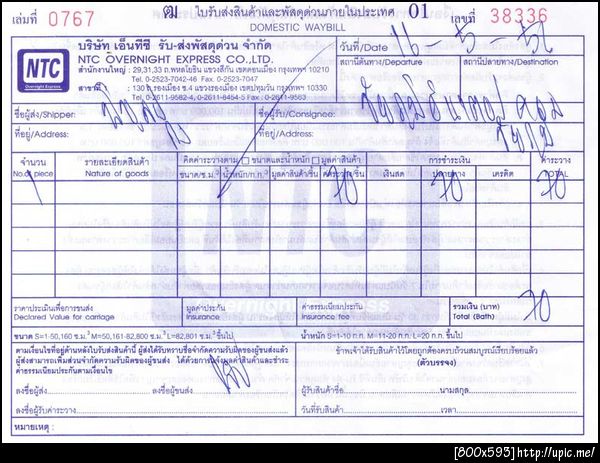 เล่มที่ 0767 ฒ ใบรับส่งสินค้าและพัสดุด่วนภายในประเทศ 01 เลขที่ 38336
DOMESTIC WAYBILL
บริษัท เอ็นทีซี รับ-ส่งพัสดุด่วน จำกัด
NTC OVERNIGHT EXPRESS CO.,LTD.
NTC
Overnight Express
สำนักงานใหญ่ : 29,31,33 ถ.พหลโยธิน แขวงสีกัน เขตดอนเมือง กรุงเทพฯ 10210
Tel. 0-2523-7042-46 Fax. 0-2523-7047
สาขาที่ 1 : 130 ซ.รองเมือง ซ.4 แขวงรองเมือง เขตปทุมวัน กรุงเทพฯ 10330
Tel. 0-2611-9582-4, 0-2611-8454-5 Fax : 0-2611-9583
วันที่/Date 16-5-52
สถานีต้นทาง/Departure สถานีปลายทาง/Destination
ชื่อผู้ส่ง/Shipper: ชื่อผู้รับ/Consignee:
ที่อยู่/Address: ที่อยู่/Address:
จำนวน รายละเอียดสินค้า คิดค่าระวางตาม ขนาดและน้ำหนัก มูลค่าสินค้า การชำระเงิน ค่าระวาง
No. of piece Nature of goods ขนาด/ซ.ม. น้ำหนัก/ก.ก. มูลค่าสินค้า/ชิ้น ค่าระวาง/ชิ้น เงินสด ปลายทาง เครดิต TOTAL
1 70 70 70
ราคาประเมินเพื่อการขนส่ง มูลค่าประกัน ค่าธรรมเนียมประกัน รวมเงิน (บาท)
Declared Value for carriage Insurance Insurance fee Total (Bath) 70
ขนาด S=1-50,160 ซ.ม.³ M=50,161-82,800 ซ.ม.³ L=82,801 ซ.ม.³ ขึ้นไป น้ำหนัก S=1-10 ก.ก. M=11-20 ก.ก. L=20 ก.ก. ขึ้นไป
ตามเงื่อนไขที่อยู่ด้านหลังใบส่งสินค้านี้ ผู้ส่งได้รับทราบข้อจำกัดความรับผิดของผู้ขนส่งแล้ว
ผู้ส่งสามารถเพิ่มส่วนจำกัดความรับผิดของผู้ขนส่ง ได้ด้วยการแจ้งมูลค่าสินค้าและชำระ
ค่าธรรมเนียมประกันตามเงื่อนไข
ข้าพเจ้าได้รับสินค้าไว้โดยถูกต้องครบถ้วนสมบูรณ์เรียบร้อยแล้ว
(ตัวบรรจง)
ลงชื่อผู้ส่ง ลงชื่อผู้ขนส่ง ผู้รับสินค้าชื่อ นามสกุล
ลงชื่อผู้รับค่าระวาง วันที่รับสินค้า เวลา
หมายเหตุ :
[800x593]http://upic.me/